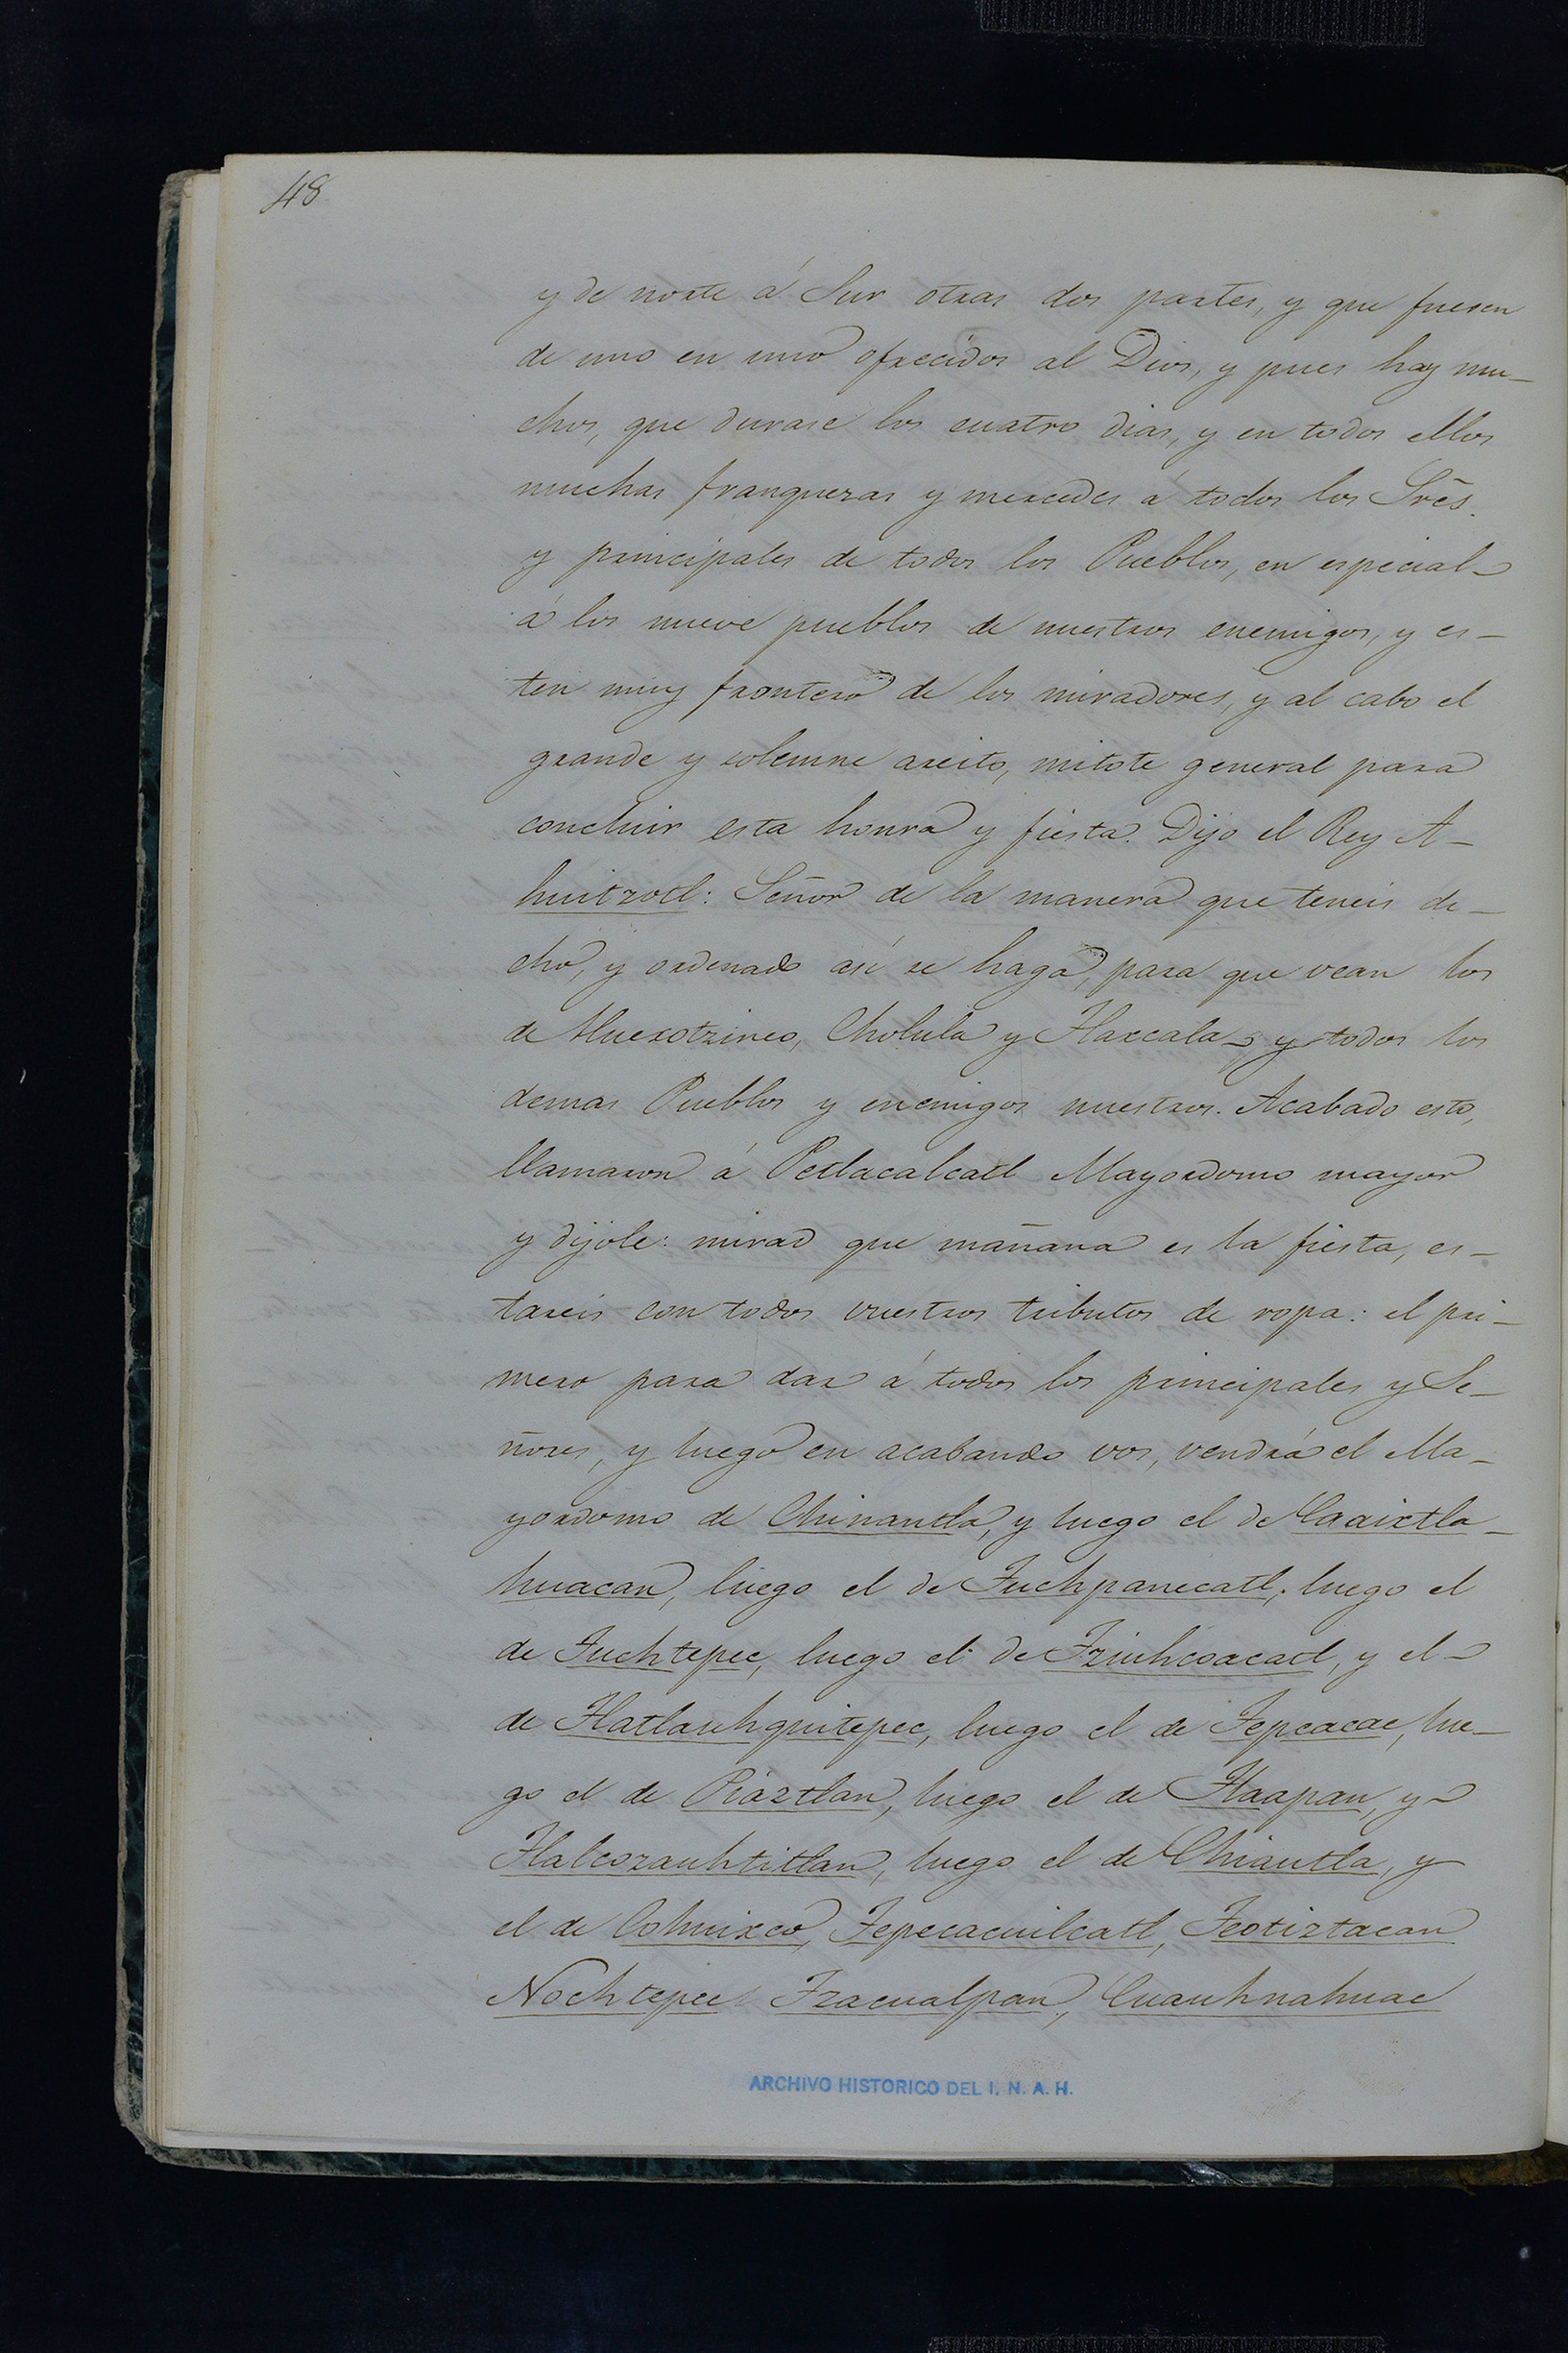 48
y de norte á Sur otras dos partes, y que fuesen
de uno en uno ofrecidos al Dios, y pues hay mu-
chos, que durase los cuatro dias, y en todos ellos
muchas franquezas y mercedes á todos los Srēs.
y principales de todos los Pueblos, en especial
á los nueve pueblos de nuestros enemigos, y es-
ten muy frontero de los miradores, y al cabo el
grande y solemne areito, mitote general para
concluir esta honra y fiesta. Dijo el Rey A-
huitzotl: Señor de la manera que teneis de-
cho, y ordenado así se haga, para que vean los
de Huexotzinco, Cholula y Tlaxcala y todos los
demas Pueblos y enemigos nuestros. Acabado esto,
llamaron á Petlacalcatl Mayordomo mayor
y dijole: mirad que mañana es la fiesta, es-
tareis con todos vuestros tributos de ropa: el pri-
mero para dar á todos los principales y Se-
ñores, y luego en acabando vos, vendrá el Ma-
yordomo de Chinantla, y luego el de Coaixtla-
huacan, luego el de Tuchpanecatl, luego el
de Tuchtepec, luego el de Tziuhcoacatl, y el
de Tlatlauhquitepec, luego el de Tepeacac, lue-
go el de Piaztlan, luego el de Tlaapan, y
Tlalcozauhtitlan, luego el de Chiautla, y
el de Cohuixco, Tepecacuilcatl, Teotiztacan
Nochtepec Tzacualpan, Cuauhnahuac
ARCHIVO HISTORICO DEL I. N. A. H.